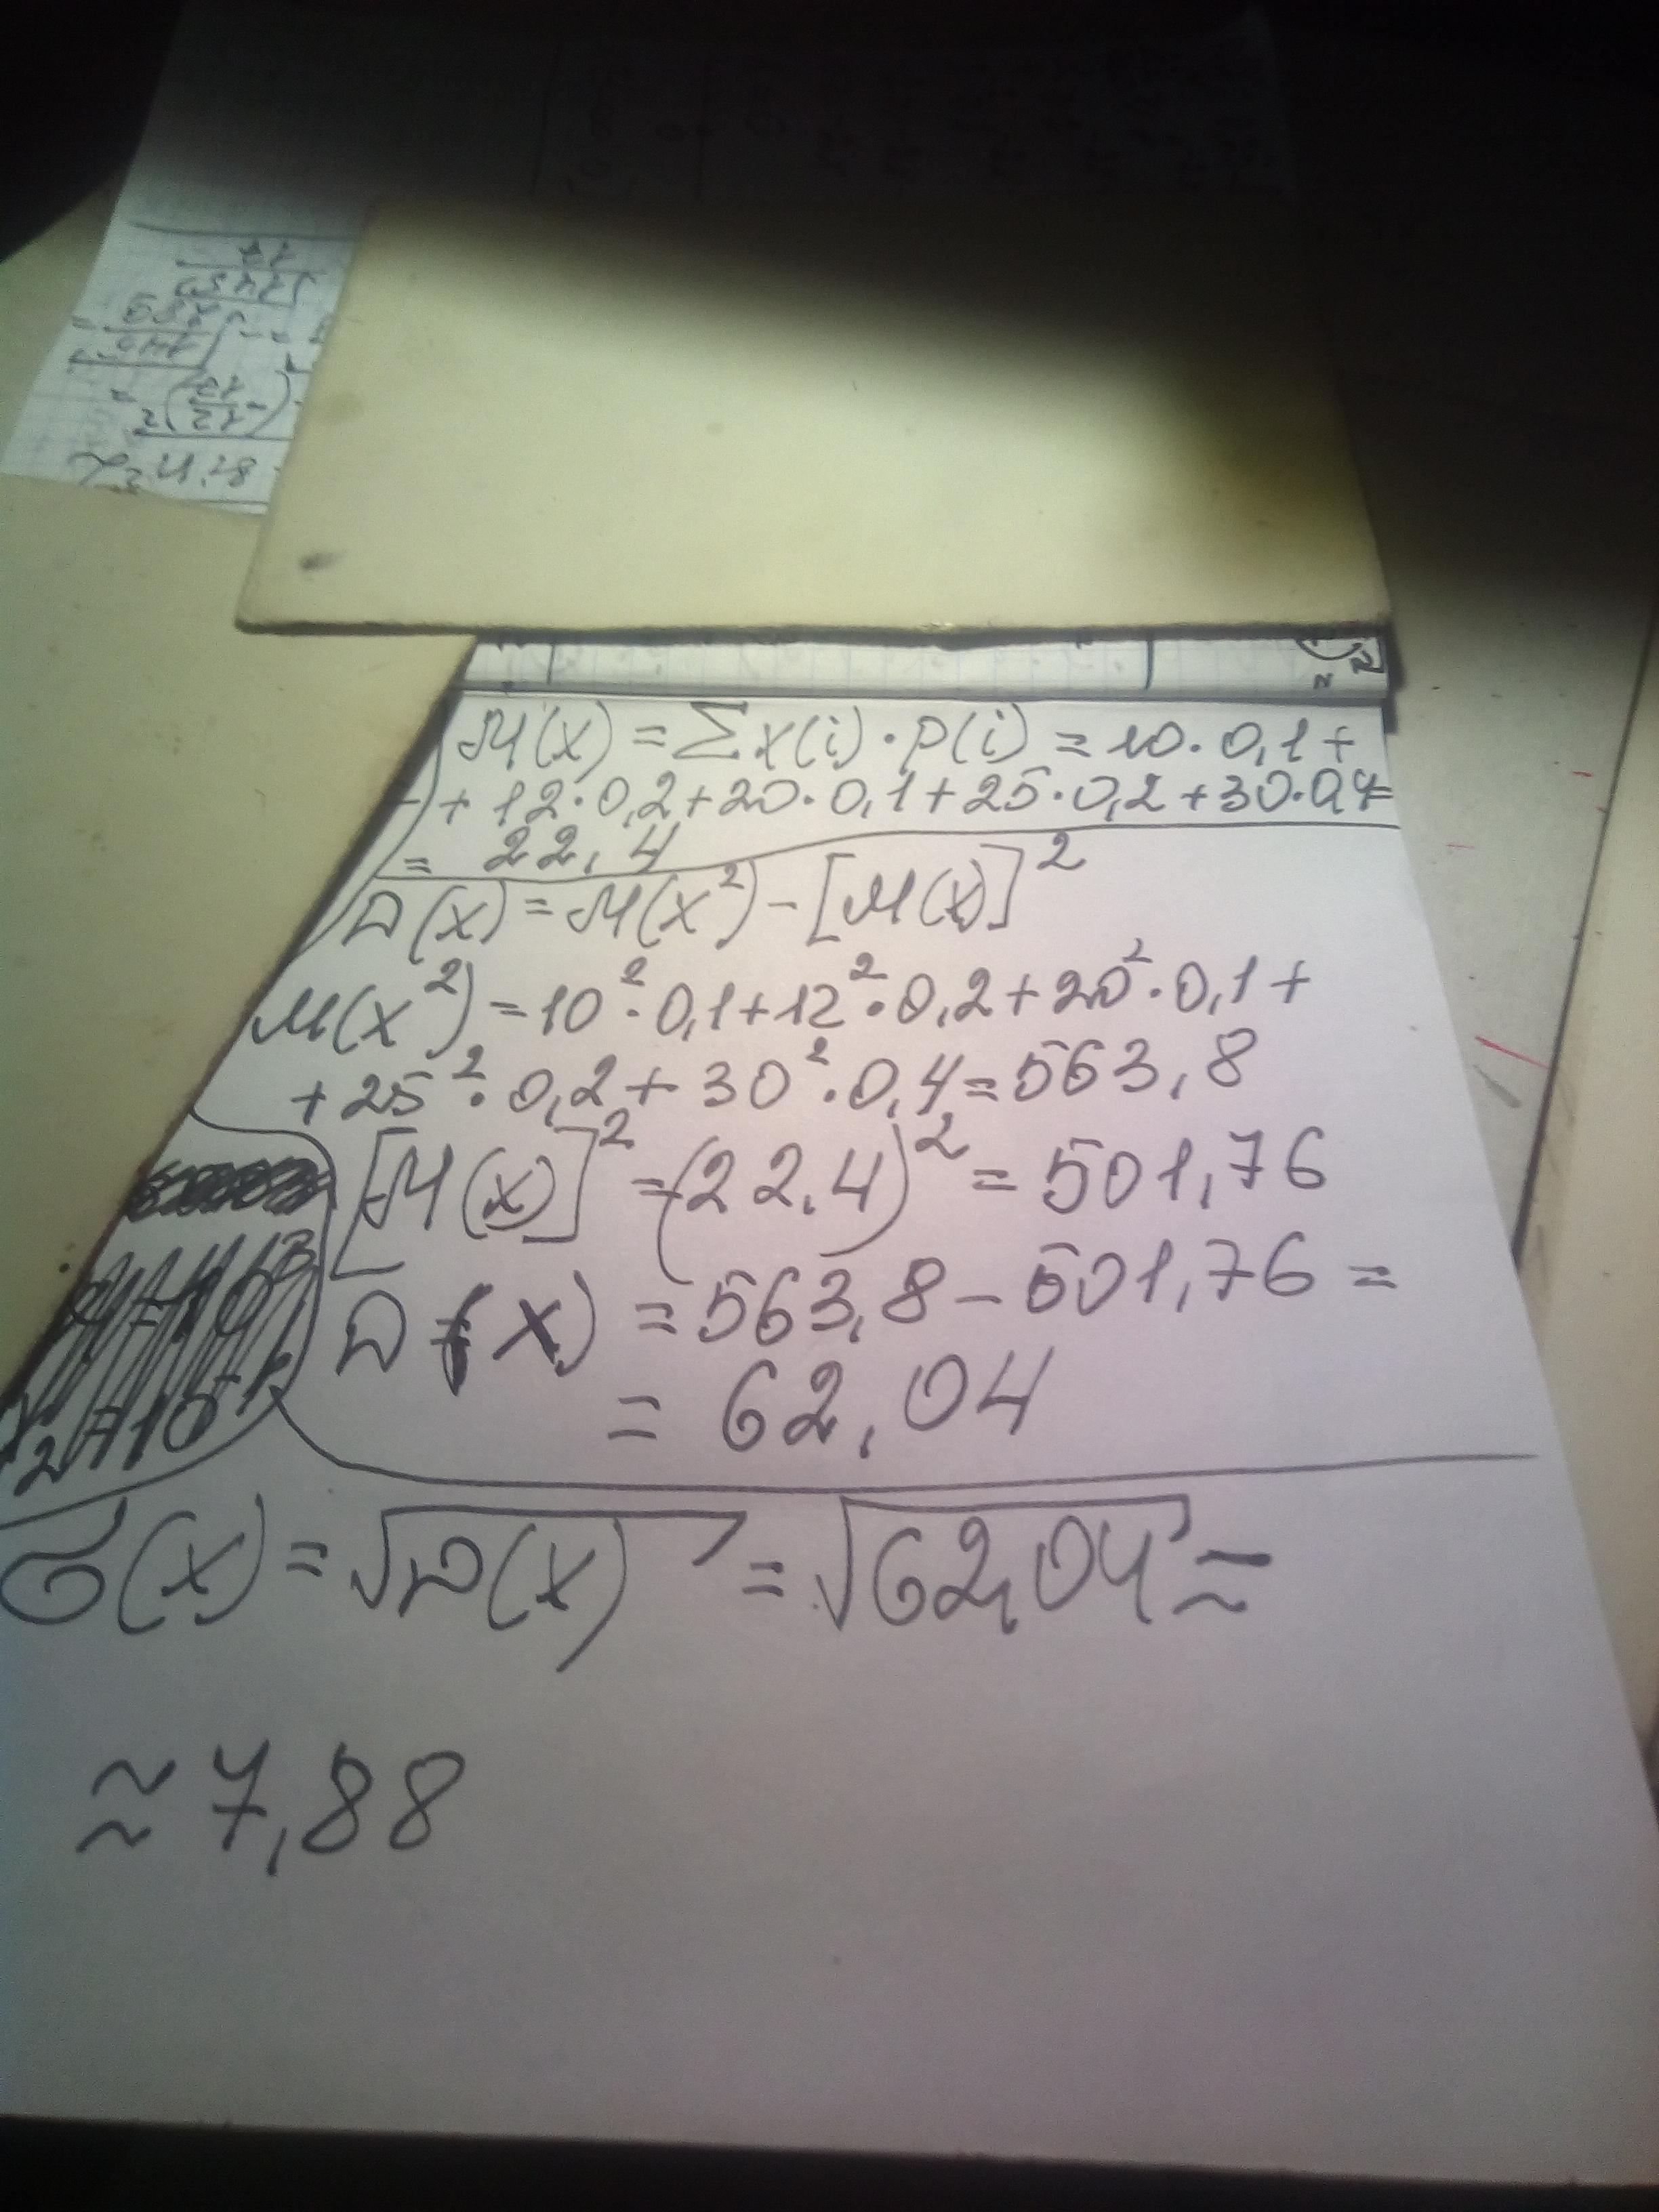 M(x) = Σx(i)·p(i) = 10·0,1+
+ 12·0,2+20·0,1+25·0,2+30·0,4=
= 22,4
D(x) = M(x²) - [M(x)]²
M(x²) = 10²·0,1+12²·0,2+20²·0,1+
+ 25²·0,2+30²·0,4=563,8
[M(x)]² = (22,4)² = 501,76
D(x) = 563,8-501,76 =
= 62,04
σ(x) = √D(x) = √62,04 ≈
≈ 7,88